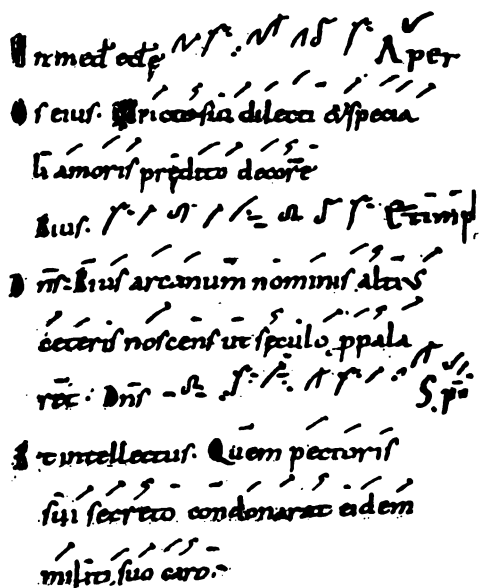 In med ecłę Aper
Os eius. dilecti & specia
li amoris prędito decore
Eius. Et impl
Dn̅s. Eius arcanum nominis altius
ceteris noscens ut seculo ppala
ret: Dn̅s S. pu
Et intellectus. Quem pectoris
sui secreto condonarat eidem
militi suo caro.